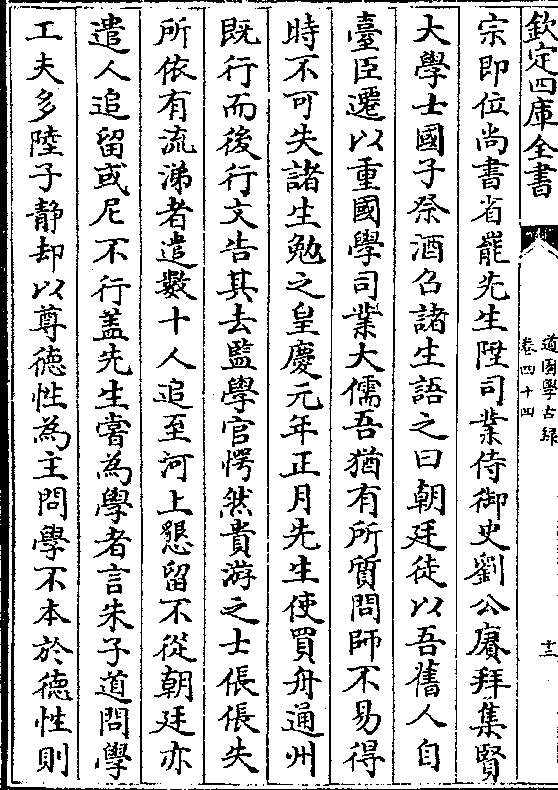 欽定四庫全書
道園學古録
卷四十四
十三
宗即位尚書省罷先生陞司業侍御史劉公賡拜集賢
大學士國子祭酒召諸生語之曰朝廷徒以吾舊人自
臺臣遷以重國學司業大儒吾猶有所質問師不易得
時不可失諸生勉之皇慶元年正月先生使買舟通州
既行而後行文告其去監學官愕然貴游之士倀倀失
所依有流涕者遣數十人追至河上懇留不從朝廷亦
遣人追留或尼不行盖先生嘗為學者言朱子道問學
工夫多陸子静却以尊德性為主問學不本於德性則